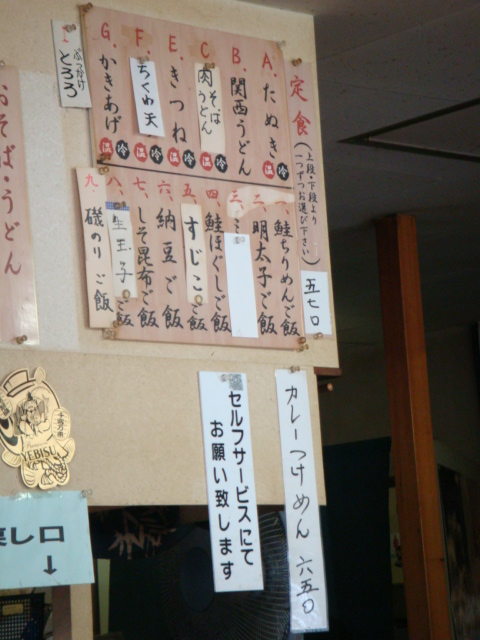 定食(上段・下段より
一つずつお選び下さい)
A.たぬき 温 冷
B.関西うどん
C.肉そばうどん 温 冷
E.きつね 温 冷
F.ちくわ天 温 冷
G.かきあげ 温 冷
I ぶっかけ
とろろ
一、鮭ちりめんご飯
二、明太子ご飯
三、ミ
四、鮭ほぐしご飯
五、すじこご飯
六、納豆ご飯
七、しそ昆布ご飯
八、生玉子ご飯
九、磯のりご飯
五七〇
おそば・うどん
セルフサービスにて
お願い致します
カレーつけめん 六五〇
YEBISU
戻し口
↓